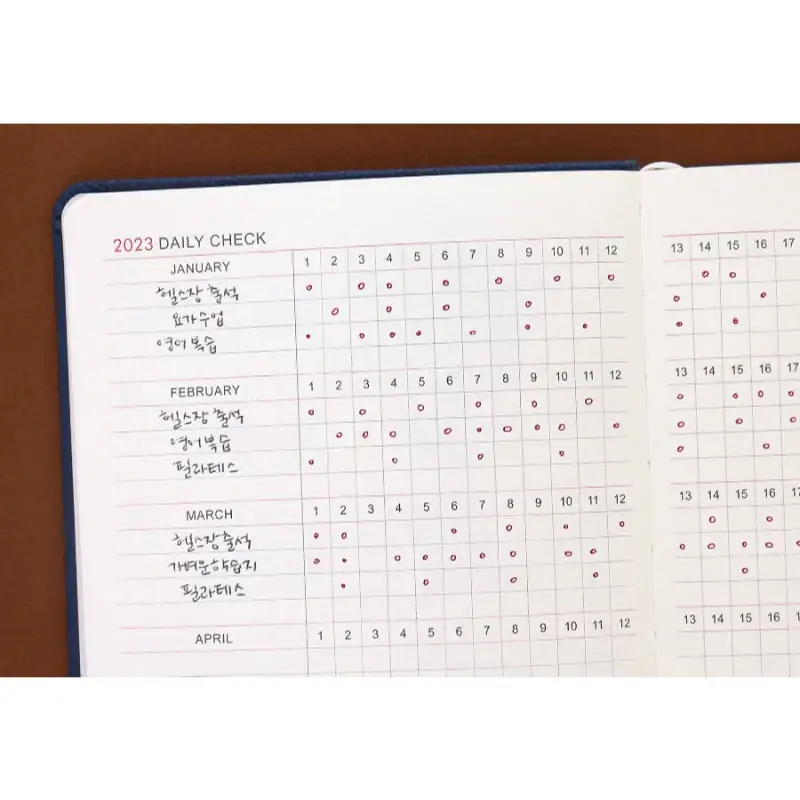 2023 DAILY CHECK
JANUARY 1 2 3 4 5 6 7 8 9 10 11 12 13 14 15 16 17
헬스장 출석
요가수업
영어복습
FEBRUARY 1 2 3 4 5 6 7 8 9 10 11 12 13 14 15 16 17
헬스장 출석
영어복습
필라테스
MARCH 1 2 3 4 5 6 7 8 9 10 11 12 13 14 15 16 17
헬스장출석
가벼운학습지
필라테스
APRIL 1 2 3 4 5 6 7 8 9 10 11 12 13 14 15 16